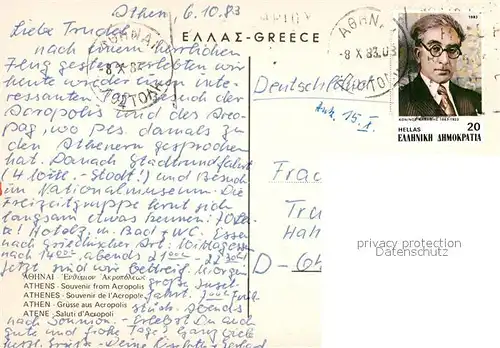 Athen, 6.10.83
Liebe Trudel
nach einem herrlichen
Flug gestern erlebten wir
heute wieder einen inte-
ressanten Tag. Besuch der
Acropolis und des Areo-
pag, wo Pls. damals zu
den Athenern gesprochen
hat. Danach Stadtrundfahrt
(4 Millt.-Stadt!) und Besuch
im Nationalmuseum. Die
Freizeitgruppe lernt sich
langsam etwas kennen:
Hotelz. m. Bad + WC. Essen
nach griechischer Art: Mittagessen
nach 14:00, abends 21:00 - 22:30
Jetzt sind wir bettreif. Morgen
große Insel-
fahrt.
stück. Abends
nach Sounion. Erlebst Du auch
gute und frohe Tage? Ganz viele
herzl. Grüße - Deine
ΑΘΗΝΑΙ Ἐνθύμιον Ἀκροπόλεως
ATHENS - Souvenir from Acropolis
ATHENES - Souvenir de l'Acropole
ATHEN - Grüsse aus Acropolis
ATENE - Saluti d'Acropoli
ΕΛΛΑΣ-GREECE
-8 X 83
-8 X 83.03
ΑΘΗΝ
1982
HELLAS 20
ΕΛΛΗΝΙΚΗ ΔΗΜΟΚΡΑΤΙΑ
Deutschland
Ank. 15. X.
Frau
Tru
Hah
D - 64
privacy protection
Datenschutz